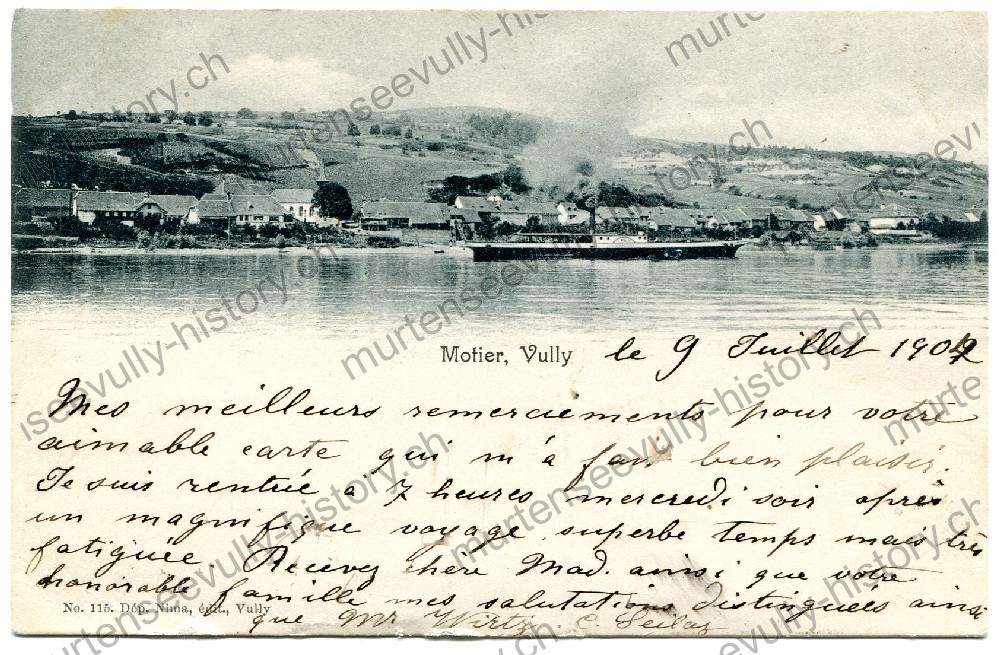 Motier, Vully le 9 Juillet 1904
Mes meilleurs remerciements pour votre
aimable carte qui m'a fait bien plaisir.
Je suis rentrée à 7 heures mercredi soir après
un magnifique voyage superbe temps mais très
fatiguée. Recevez chère Mad. ainsi que votre
honorable famille mes salutations distinguées ainsi
que Mr Wirtz. C. Seilaz
No. 115. Dép. Nima, édit., Vully
murtenseevully-history.ch